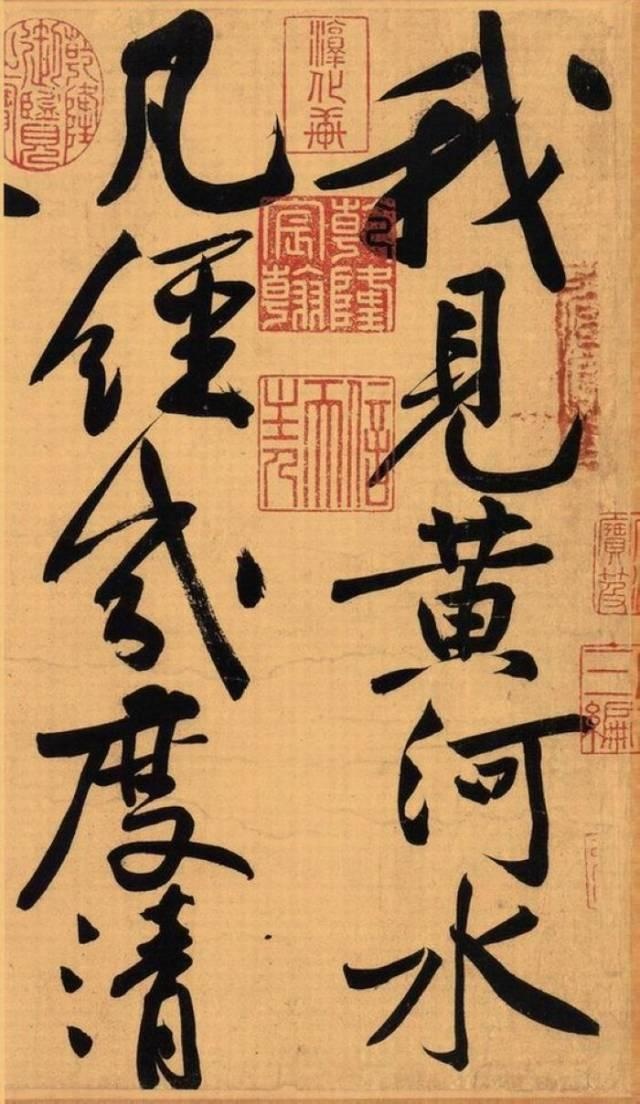 我見黃河水
凡經幾度清
淳化軒
乾隆宸翰
信天主人
寶笈
三編
乾隆御覽